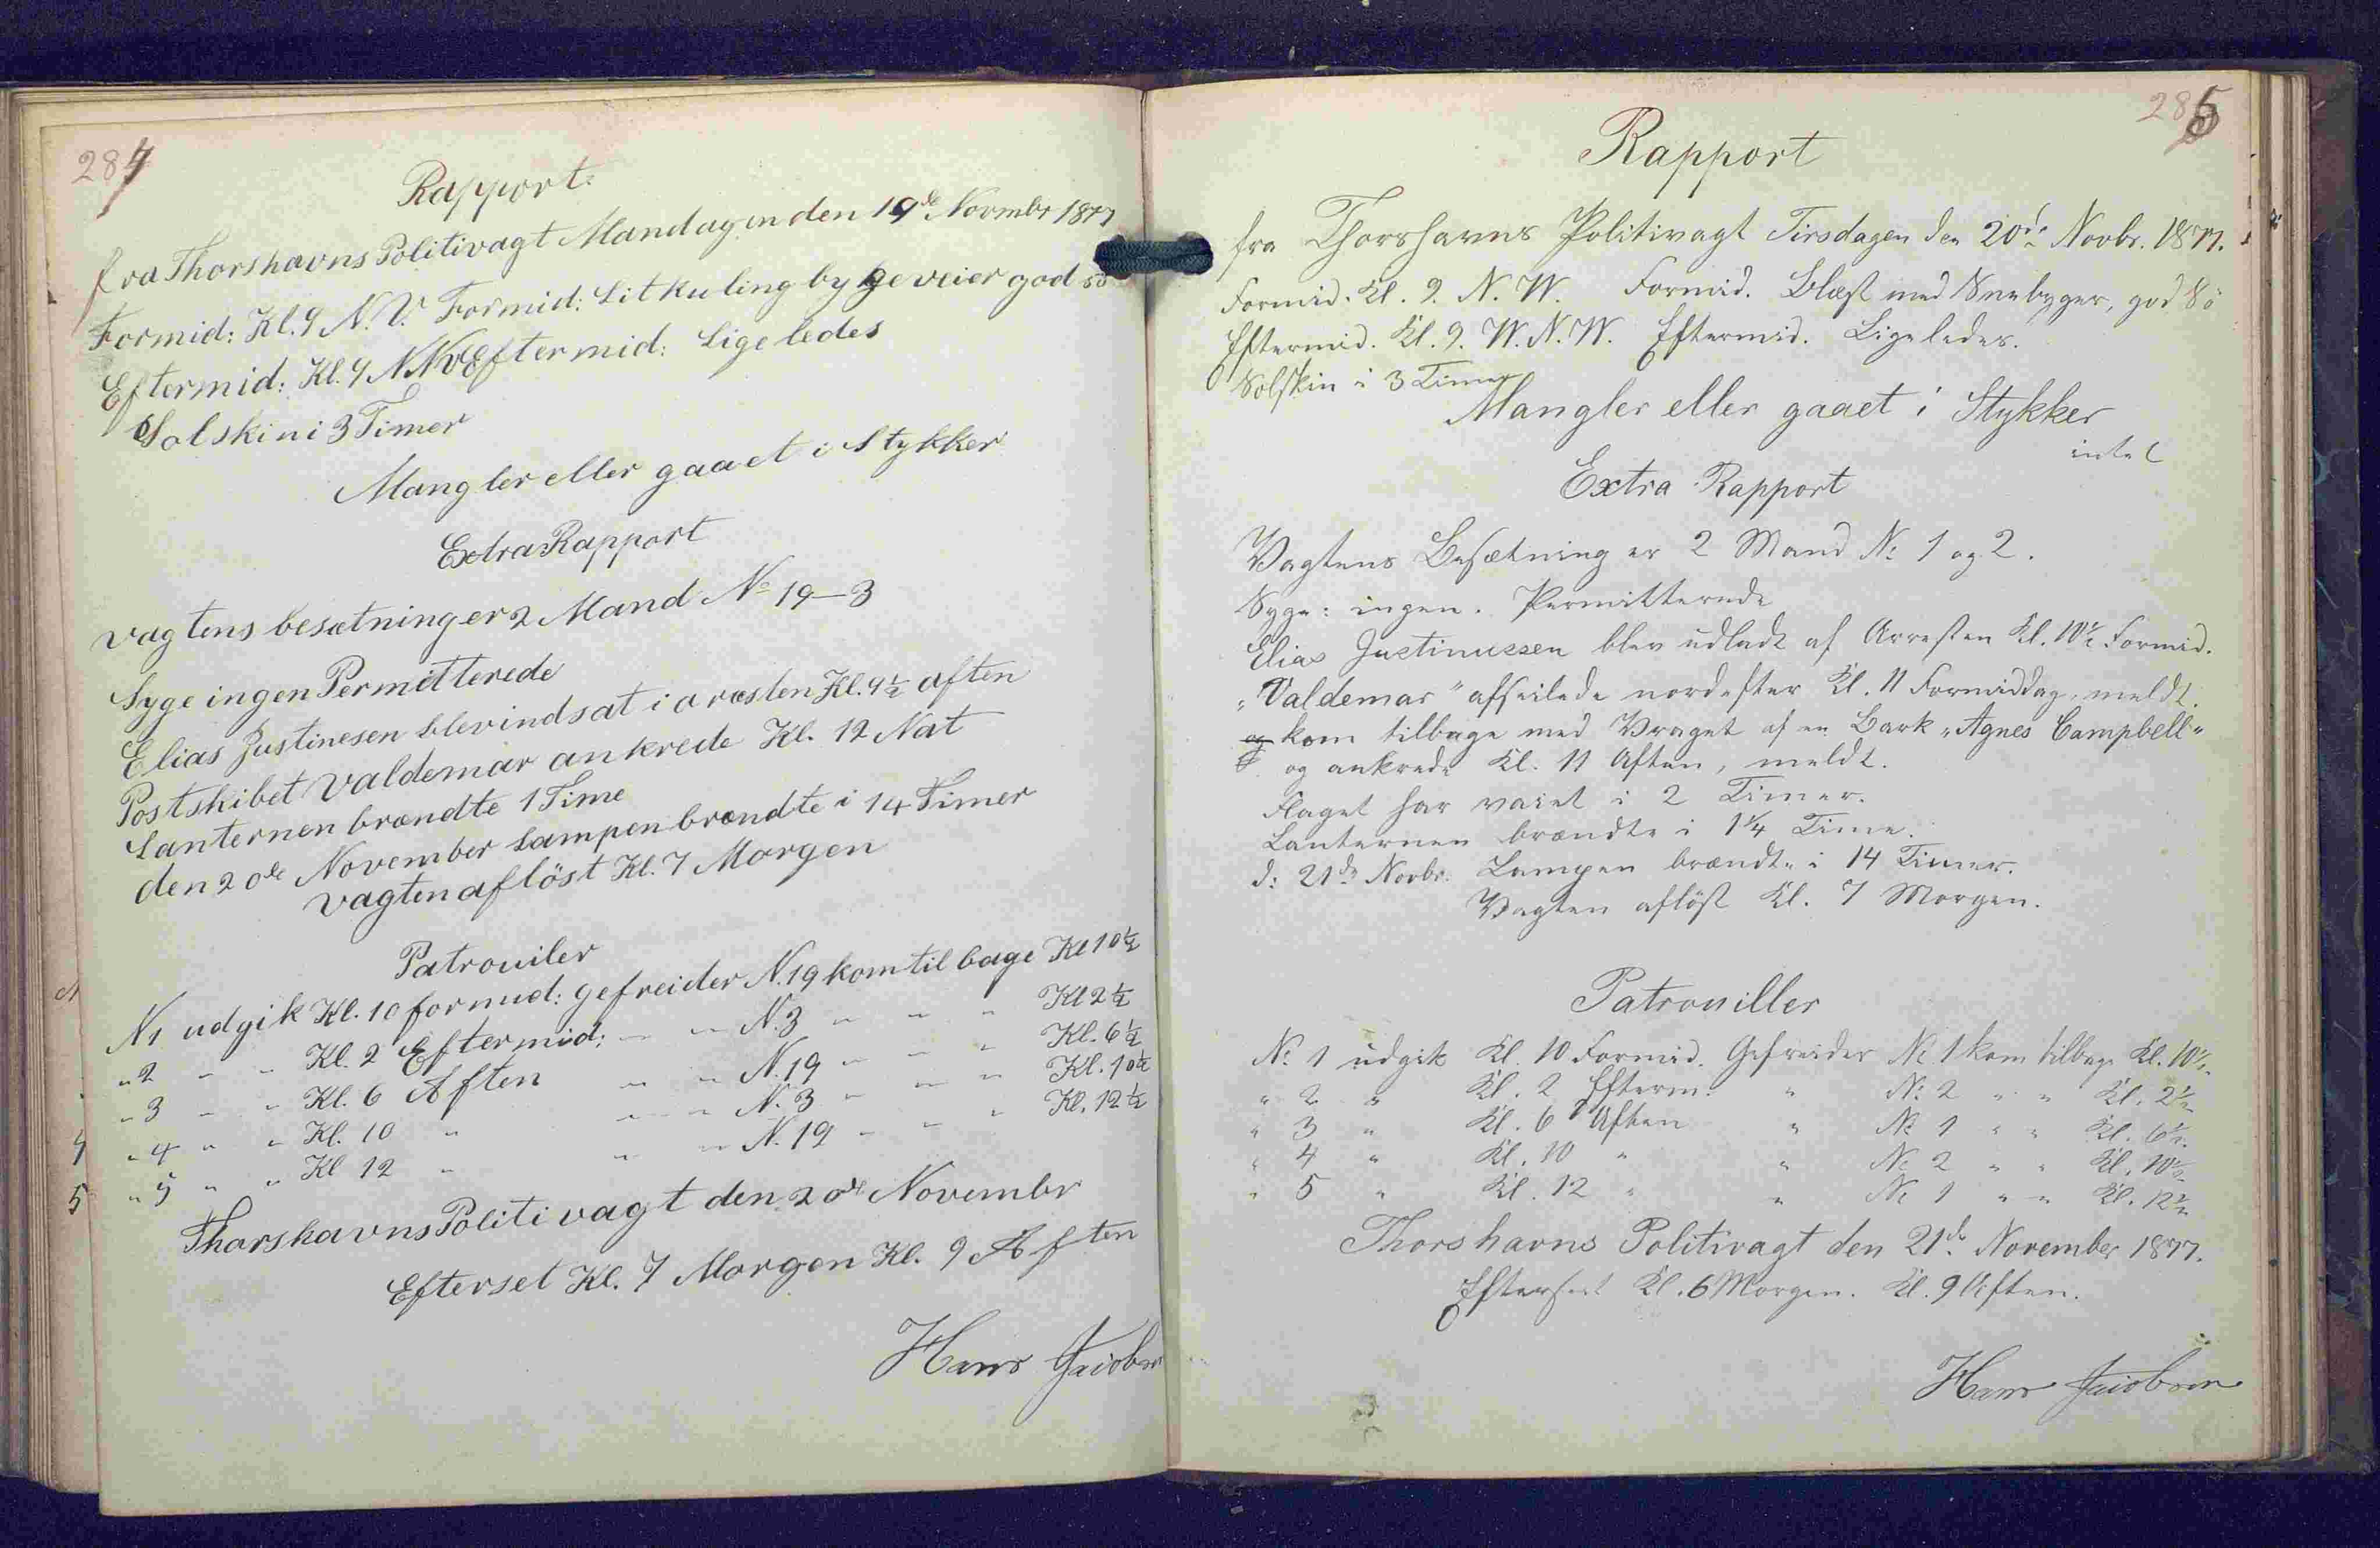 284
Rapport:
fra Thorshavns Politivagt Mandagen den 19de Novmbr 1877
Formid: Kl. 9 N. V. Formid: Litkuling bygeveier god sö
Eftermid: Kl. 9 NNV Eftermid: Ligeledes
Solskin i 3 Timer
Mangler eller gaaet i Stykker
Extra Rapport
Vagtens besætning er 2 Mand No 19–3
Syge ingen Permitterede
Elias Justinesen blev indsat i aræsten Kl. 9½ aften
Postskibet Valdemar ankrede Kl. 12 Nat
Lanternen brændte 1 Time
den 20de November Lampen brændte i 14 Timer
Vagten aflöst Kl. 7 Morgen
Patrouiler
N1 udgik Kl. 10 formid: gefreider N. 19 kom tilbage Kl 10½
" 2 " " Kl. 2 Eftermid: " " N. 3 " " " Kl 2½
" 3 " " Kl. 6 Aften " " N. 19 " " " Kl. 6½
" 4 " " Kl. 10 " " " N. 3 " " " Kl. 10½
" 5 " " Kl 12 " " " N. 19 " " " Kl. 12½
Thorshavns Politivagt den 20de Novembr
Efterset Kl. 7 Morgen Kl. 9 Aften
Hans Jacobsen
285
Rapport
fra Thorshavns Politivagt Tirsdagen den 20de Novbr. 1877.
Formid. Kl. 9. N. W. Formid. Blæst med Snebyger, god Sö
Eftermid. Kl. 9. W. N. W. Eftermid. Ligeledes.
Solskin i 3 Timer
Mangler eller gaaet i Stykker
intet
Extra Rapport
Vagtens Besætning er 2 Mand No 1 og 2.
Syge: ingen. Permitterede
Elias Justinussen blev udladt af Arresten Kl. 10½ Formid.
"Valdemar" afseilede nordefter Kl. 11 Formiddag, meldt.
og kom tilbage med Vraget af en Bark "Agnes Campbell"
og ankrede Kl. 11 Aften, meldt.
Flaget har vaiet i 2 Timer.
Lanternen brændte i 1¼ Time.
d: 21de Novbr. Lampen brændte i 14 Timer.
Vagten aflöst Kl. 7 Morgen.
Patrouiller
No 1 udgik Kl. 10 Formid. Gefreider No 1 kom tilbage Kl. 10½
" 2 " Kl. 2 Efterm. " No 2 " " Kl. 2½
" 3 " Kl. 6 Aften " No 1 " " Kl. 6½
" 4 " Kl. 10 " " No 2 " " Kl. 10½
" 5 " Kl. 12 " " No 1 " " Kl. 12½
Thorshavns Politivagt den 21de November 1877.
Efterseet Kl. 6 Morgen. Kl. 9 Aften.
Hans Jacobsen